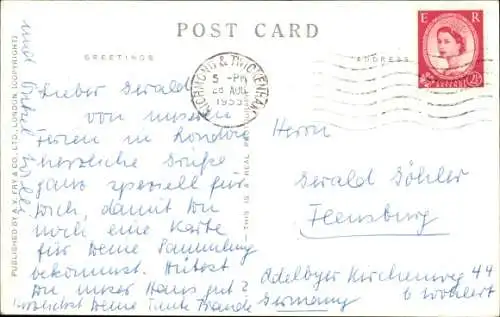 POST CARD
GREETINGS
ADDRESS
E R
POSTAGE REVENUE
2½D
RICHMOND & TWICKENHAM
5 - PM
28 AUG
1955
PUBLISHED BY A. V. FRY & CO., LTD., LONDON (COPYRIGHT)
THIS IS A REAL
und Onkel
Lieber Gerald
von unseren
Ferien in London
herzliche Grüße
ganz speziell für
Dich, damit Du
noch eine Karte
für Deine Sammlung
bekommst. Hütest
Du unser Haus gut?
herzlichst Deine Tante
Herrn
Gerald Döhler
Flensburg
Adelbyer Kirchenweg 44
b Wohlert
Germany